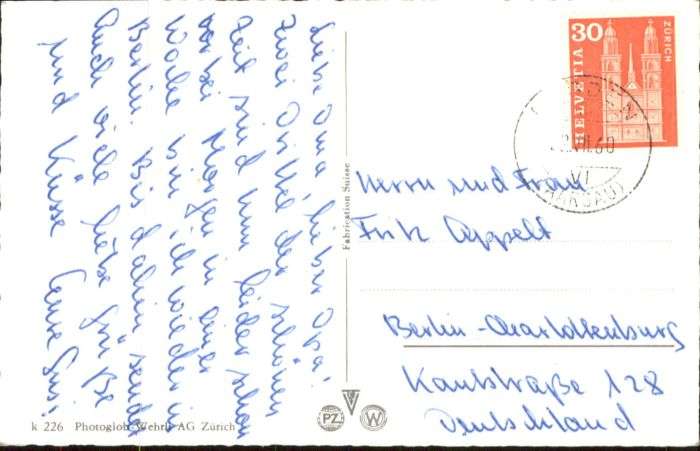 Liebe Oma, lieber Opa!
Zwei Drittel der schönen
Zeit sind nun leider schon
vorbei. Morgen in einer
Woche bin ich wieder in
Berlin. Bis dahin sendet
Euch viele liebe Grüße
und Küsse Eure
HELVETIA
30
ZÜRICH
60
(AARGAU)
Herrn und Frau
Fritz Appelt
Berlin-Charlottenburg
Kantstraße 128
Deutschland
Fabrication Suisse
PZ W
k 226 Photoglob-Wehrli AG Zürich